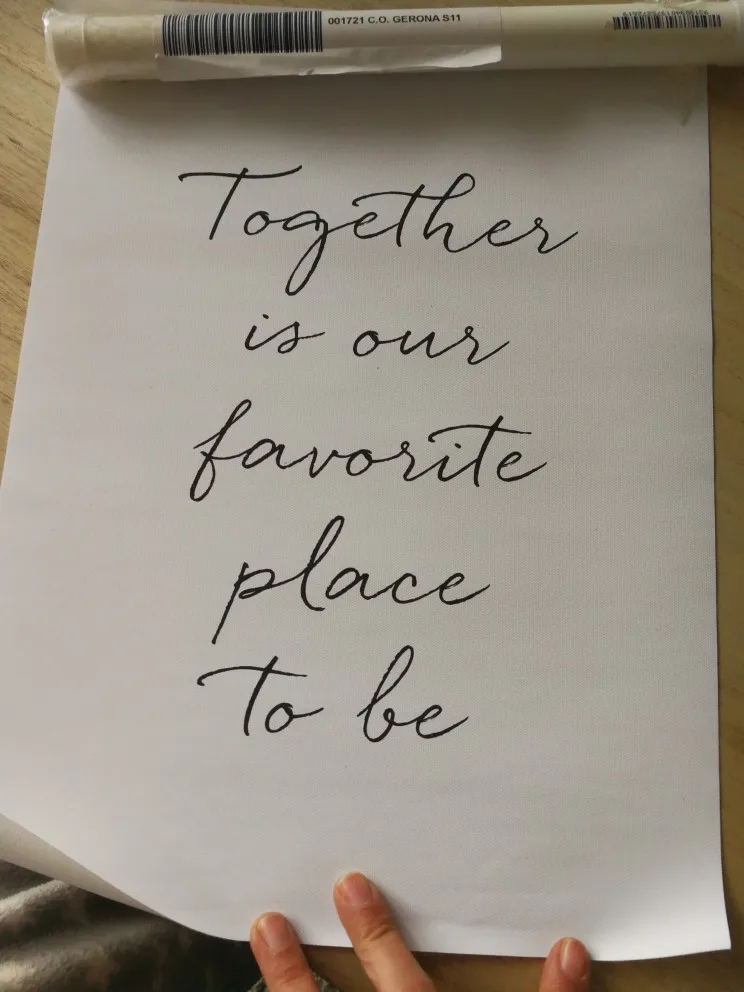 001721 C.O. GERONA S11
Together
is our
favorite
place
to be